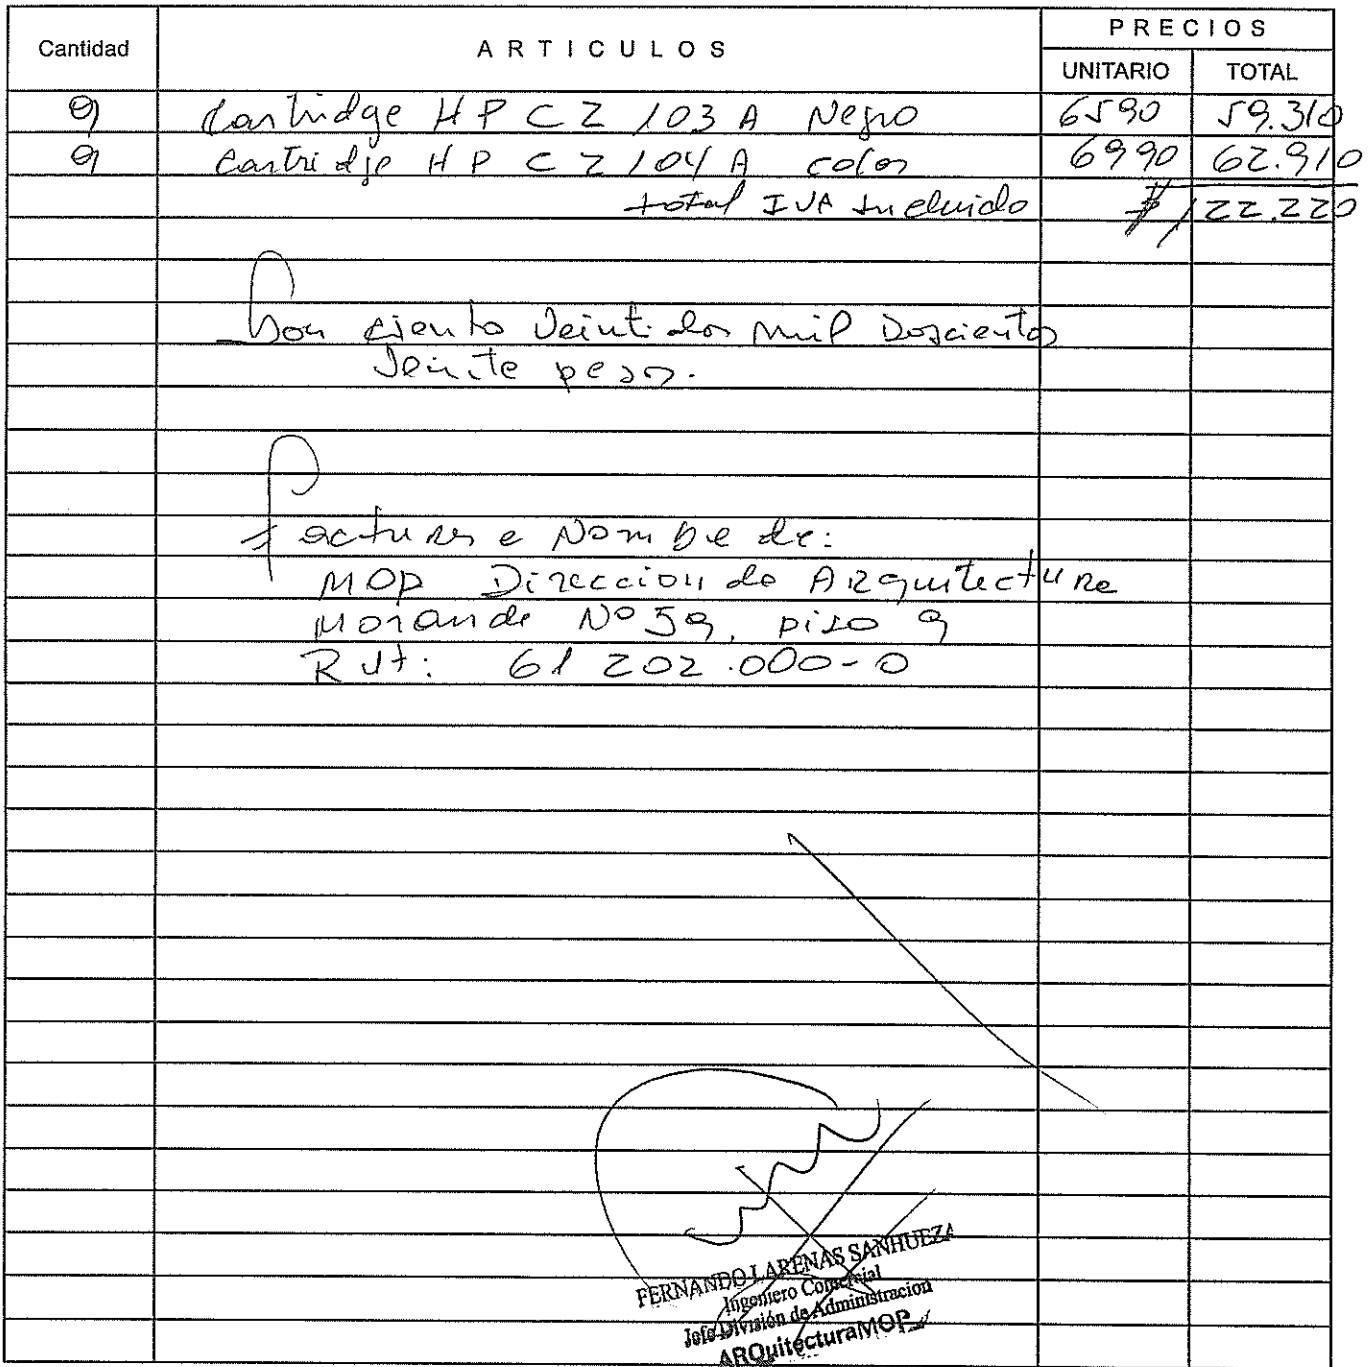 Cantidad ARTICULOS PRECIOS
UNITARIO TOTAL
9 Cartridge HP CZ 103 A Negro 6590 59.310
9 Cartridge HP CZ 104 A color 6990 62.910
total IVA Incluido $ 122.220
Son ciento Veintidos mil Doscientos
Veinte pesos.
Facturar a Nombre de:
MOP Direccion de Arquitectura
Morande Nº 59, piso 9
Rut: 61 202.000-0
FERNANDO LARENAS SANHUEZA
Ingeniero Comercial
Jefe División de Administracion
ARQuitecturaMOP